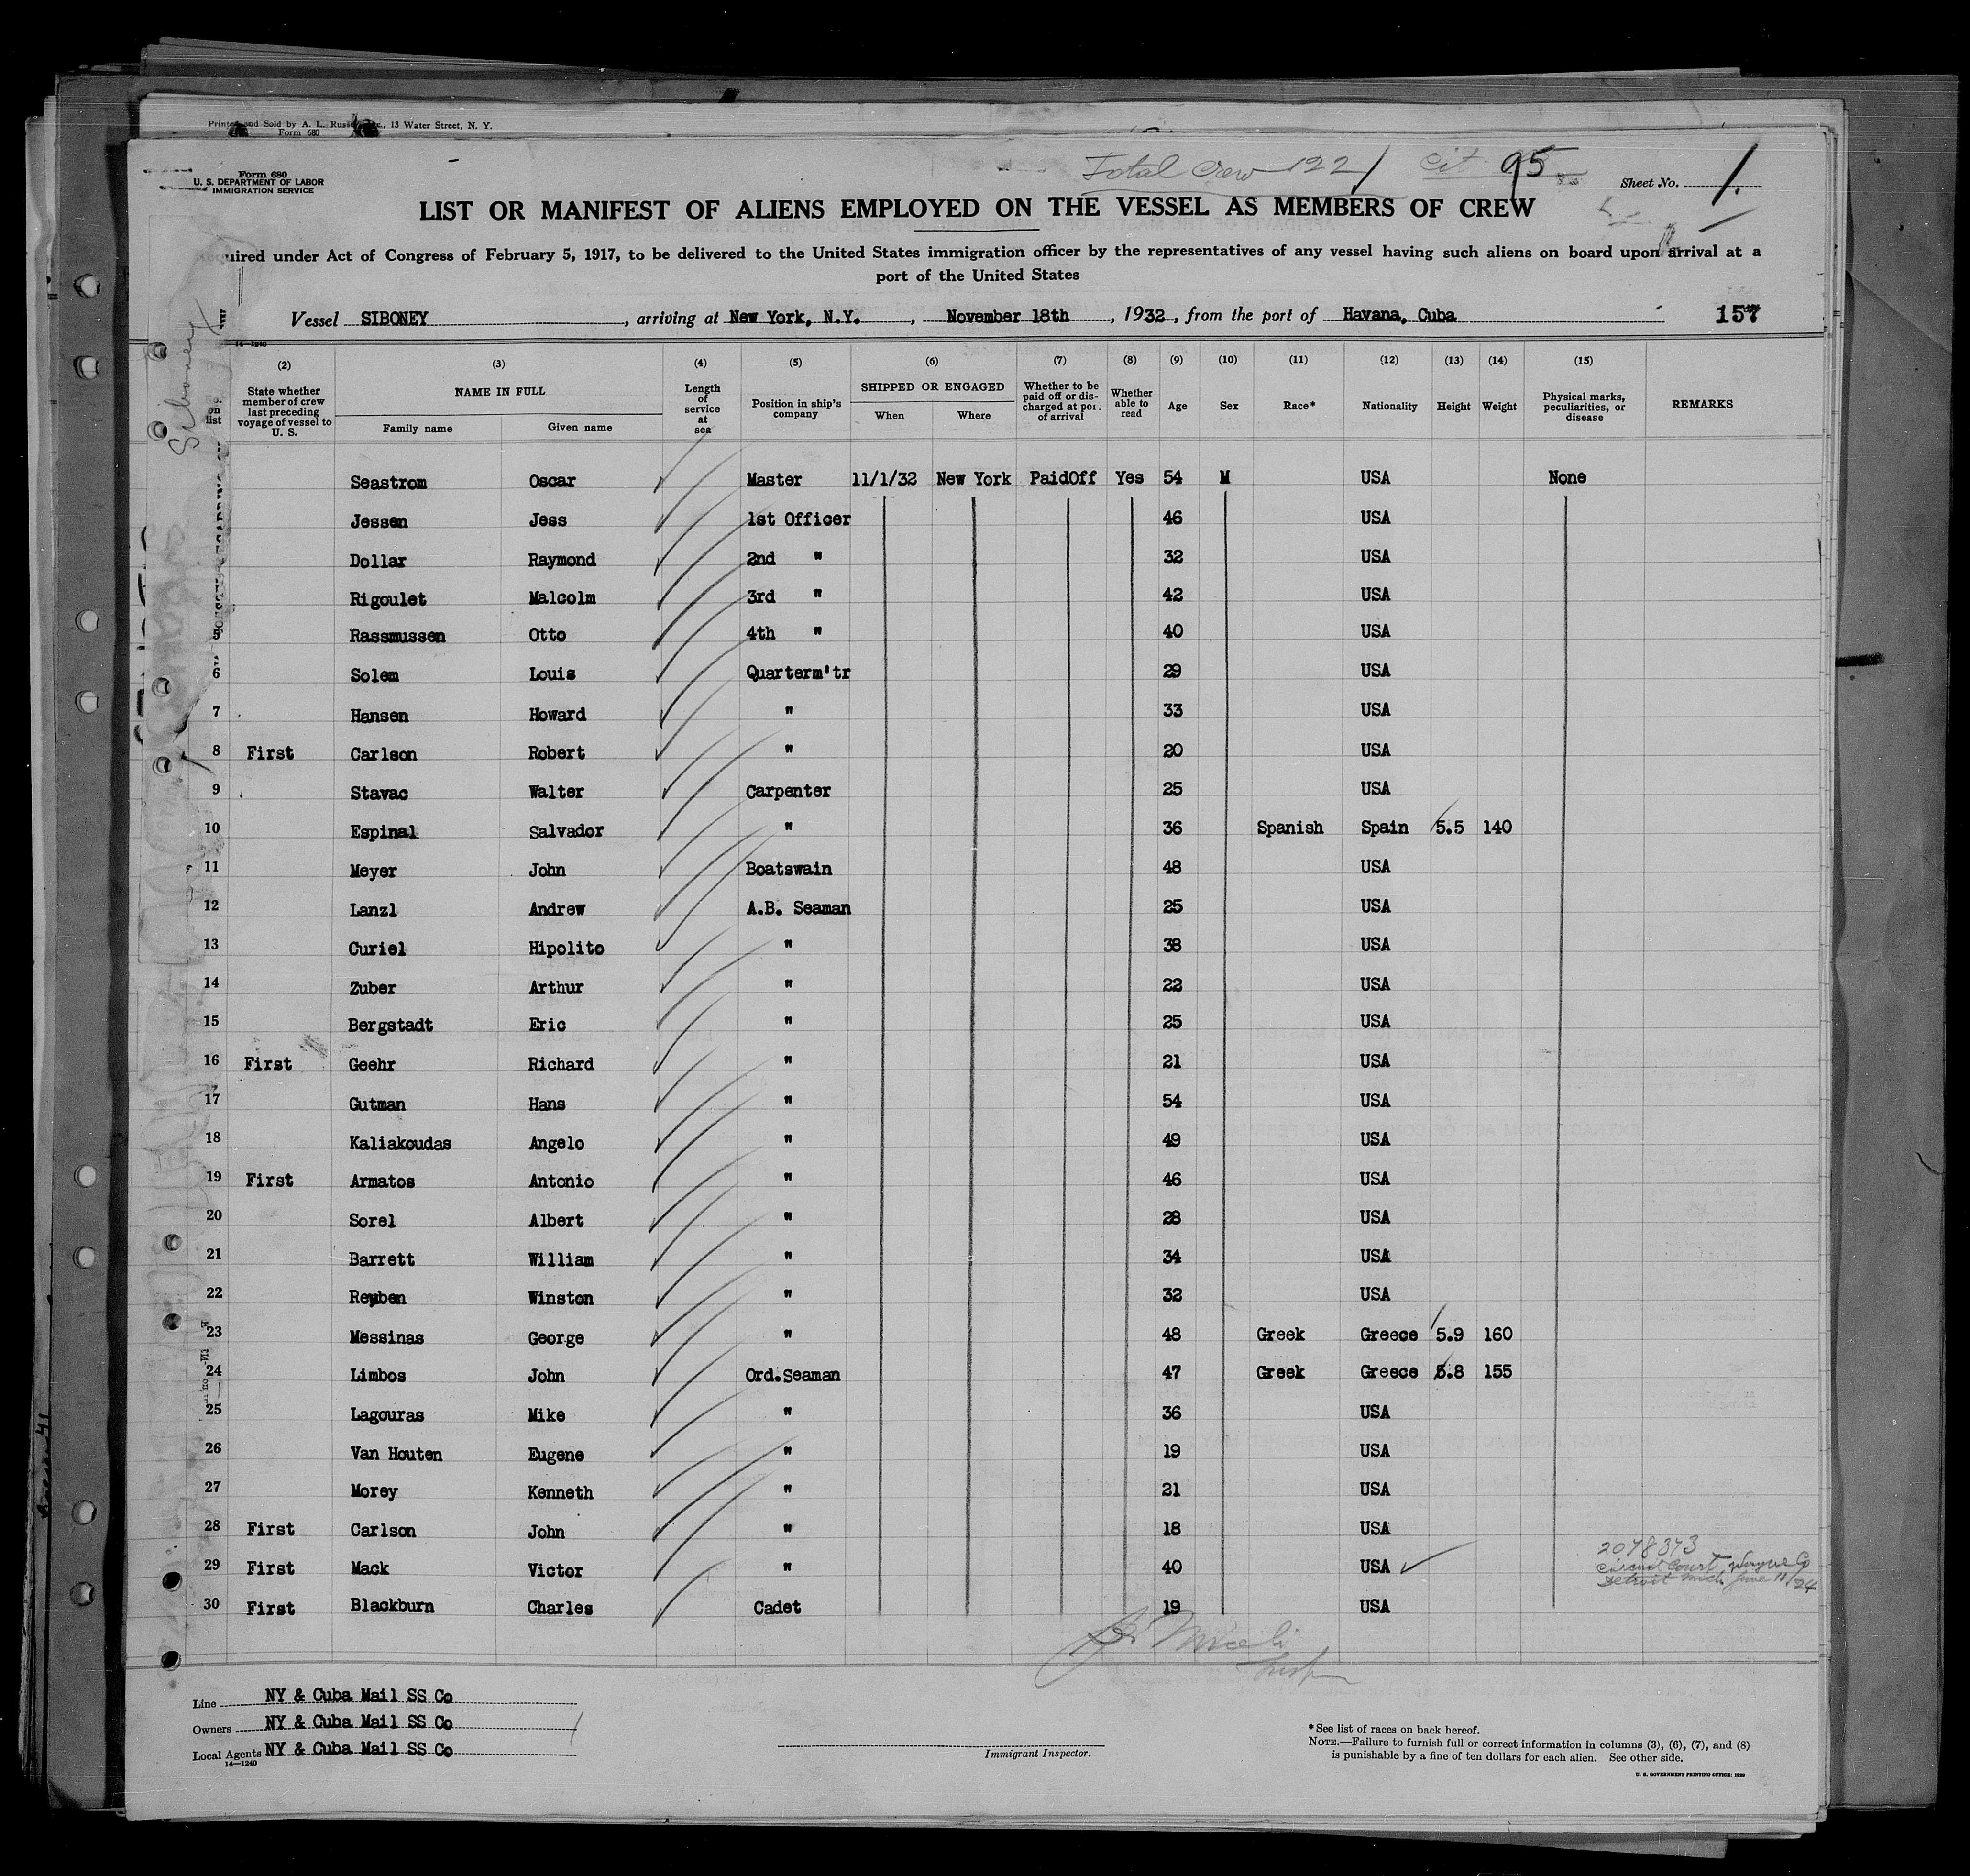 Printed and Sold by A. L. Russell, Inc., 13 Water Street, N. Y.
Form 680
Total Crew 122 / Cit 95
Form 680
U. S. DEPARTMENT OF LABOR
IMMIGRATION SERVICE
Sheet No. 1.
LIST OR MANIFEST OF ALIENS EMPLOYED ON THE VESSEL AS MEMBERS OF CREW
uired under Act of Congress of February 5, 1917, to be delivered to the United States immigration officer by the representatives of any vessel having such aliens on board upon arrival at a
port of the United States
Vessel SIBONEY, arriving at New York, N.Y., November 18th, 1932, from the port of Havana, Cuba 157
Siboney
14—1240
(2) (3) (4) (5) (6) (7) (8) (9) (10) (11) (12) (13) (14) (15)
on list
State whether member of crew last preceding voyage of vessel to U. S.
NAME IN FULL
Family name Given name
Length of service at sea
Position in ship's company
SHIPPED OR ENGAGED
When Where
Whether to be paid off or discharged at port of arrival
Whether able to read
Age Sex Race* Nationality Height Weight
Physical marks, peculiarities, or disease
REMARKS
Seastrom Oscar Master 11/1/32 New York PaidOff Yes 54 M USA None
Jessen Jess 1st Officer 46 USA
Dollar Raymond 2nd " 32 USA
Rigoulet Malcolm 3rd " 42 USA
5 Rassmussen Otto 4th " 40 USA
6 Solem Louis Quarterm'tr 29 USA
7 Hansen Howard " 33 USA
8 First Carlson Robert " 20 USA
9 Stavac Walter Carpenter 25 USA
10 Espinal Salvador " 36 Spanish Spain 5.5 140
11 Meyer John Boatswain 48 USA
12 Lanzl Andrew A.B. Seaman 25 USA
13 Curiel Hipolito " 38 USA
14 Zuber Arthur " 22 USA
15 Bergstadt Eric " 25 USA
16 First Geehr Richard " 21 USA
17 Gutman Hans " 54 USA
18 Kaliakoudas Angelo " 49 USA
19 First Armatos Antonio " 46 USA
20 Sorel Albert " 28 USA
21 Barrett William " 34 USA
22 Reuben Winston " 32 USA
23 Messinas George " 48 Greek Greece 5.9 160
24 Limbos John Ord.Seaman 47 Greek Greece 5.8 155
25 Lagouras Mike " 36 USA
26 Van Houten Eugene " 19 USA
27 Morey Kenneth " 21 USA
28 First Carlson John " 18 USA
29 First Mack Victor " 40 USA
2078373
Circuit Court, Wayne Co
Detroit Mich. June 11/24
30 First Blackburn Charles Cadet 19 USA
Line NY & Cuba Mail SS Co
Owners NY & Cuba Mail SS Co
Local Agents NY & Cuba Mail SS Co
14—1240
Immigrant Inspector.
*See list of races on back hereof.
NOTE.—Failure to furnish full or correct information in columns (3), (6), (7), and (8)
is punishable by a fine of ten dollars for each alien. See other side.
U. S. GOVERNMENT PRINTING OFFICE: 1930